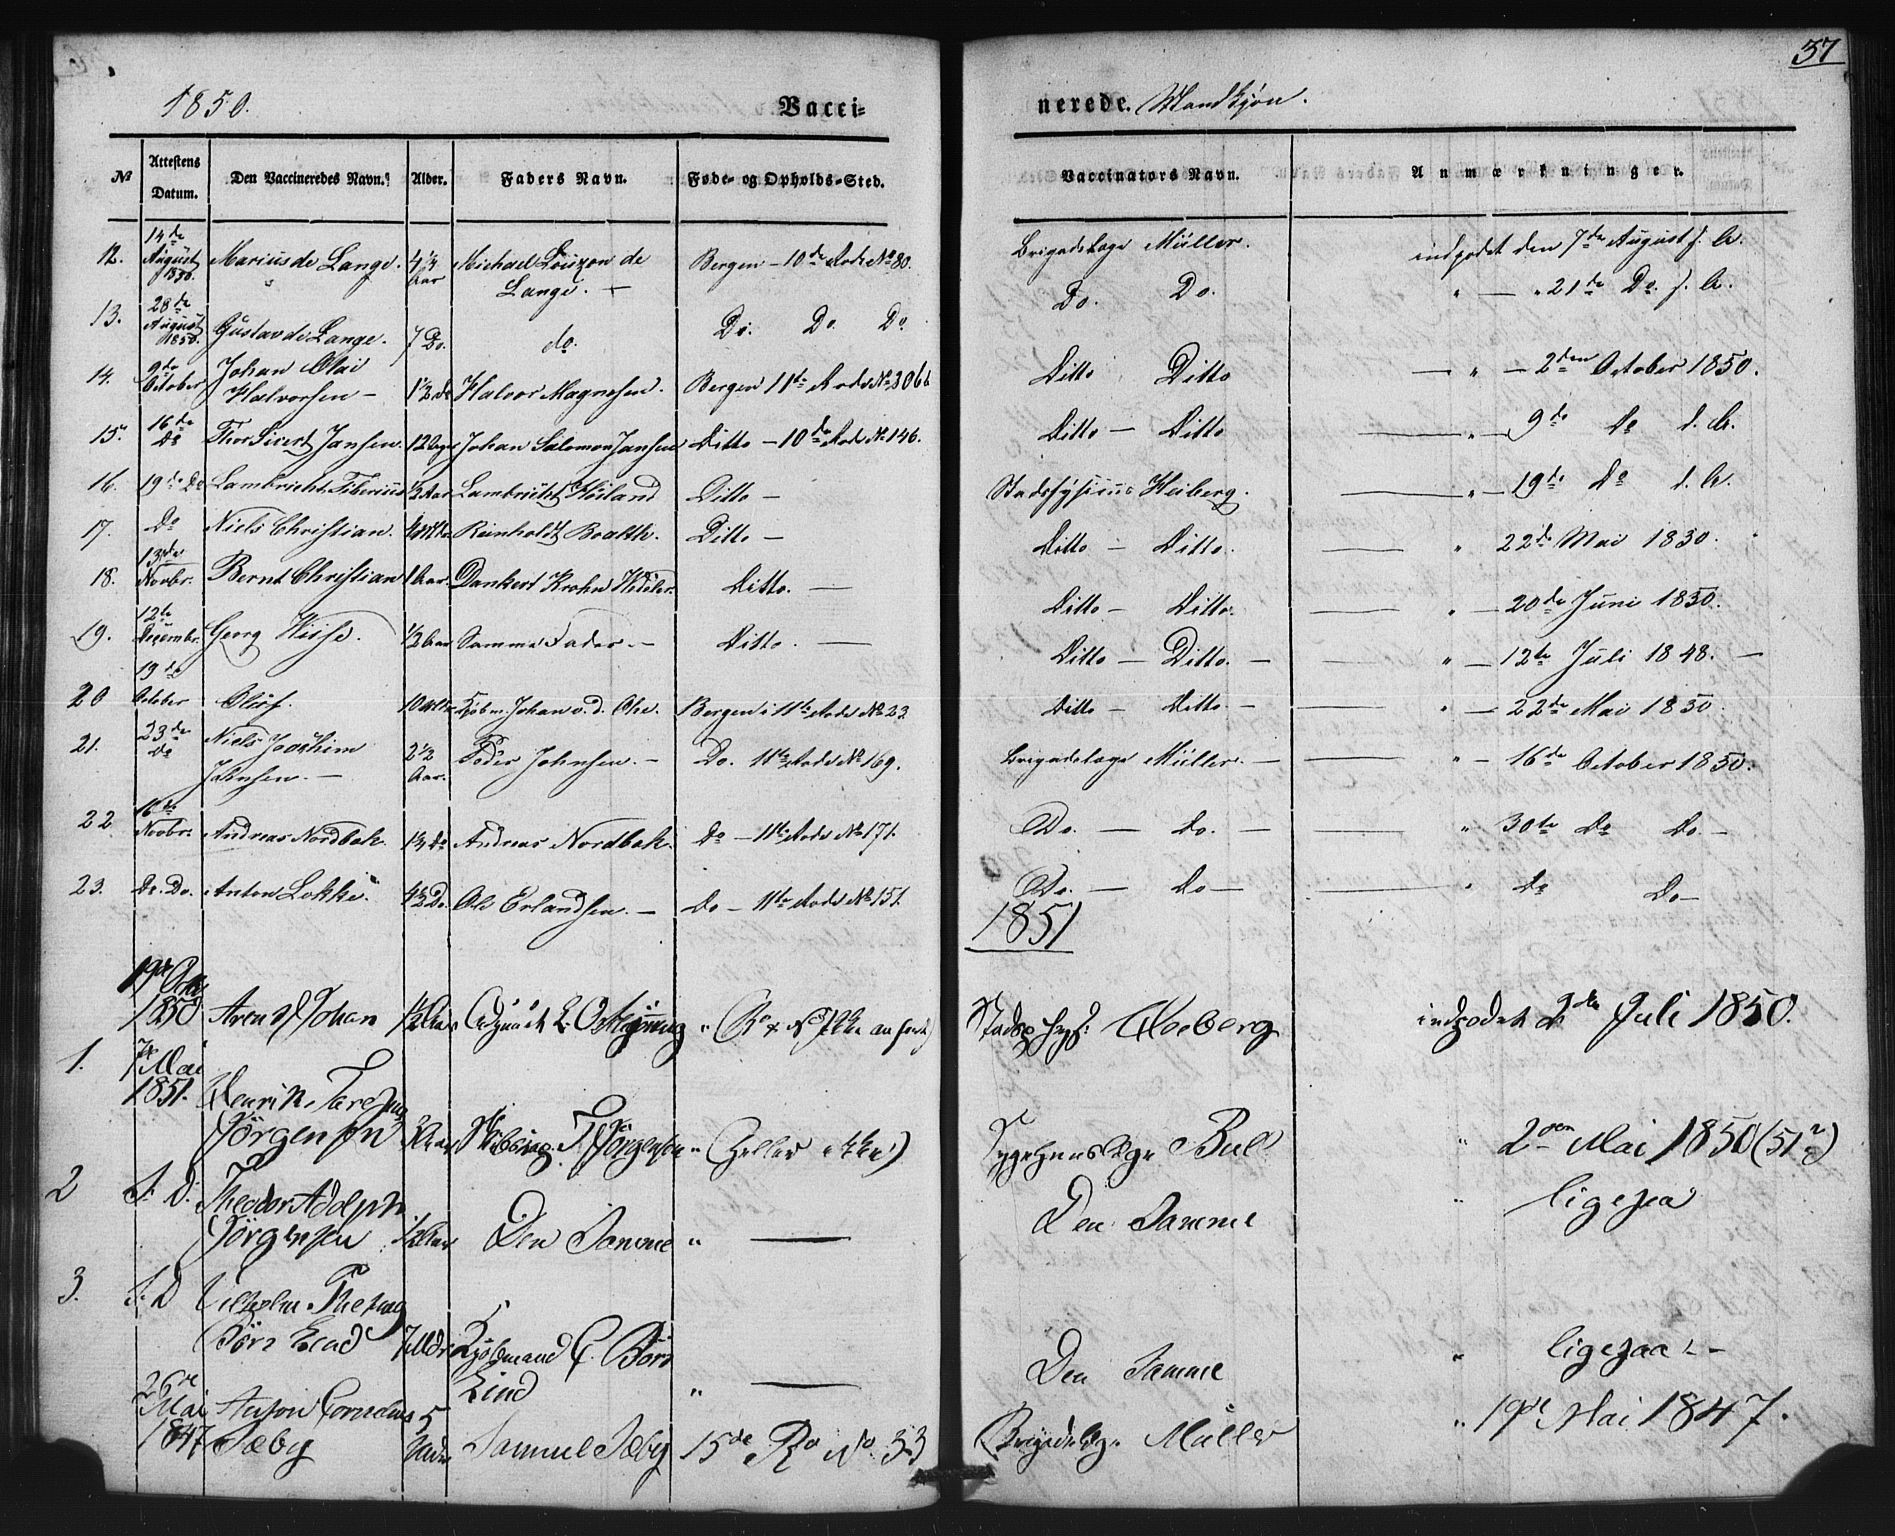 37
1850.
Vacci-
nerede. Mandkjøn.
№
Attestens Datum.
Den Vaccineredes Navn.
Alder.
Faders Navn.
Føde- og Opholds-Sted.
Vaccinators Navn.
Anmærkninger.
12. 14de August 1850. Marius de Lange. 4 1/4 Aar Michael de Lange. Bergen – 10de Rode No 80. Brigadelæge Müller. indpodet den 7de August s. A.
13. 28de August 1850. Gustav de Lange. 7 Do. do. Do. Do. Do. Do. Do. " — " 21de Do. s. A.
14. 9de October Johan Olai Halvorsen – 1 1/2 do Halvor Magnesen. Bergen 11te Rode No 306 Ditto Ditto — " — 2den October 1850.
15. 16de Do Thor Sivert Jansen. 12 Johan Salomon Jansen Ditto – 10de Rode No 146. Ditto – Ditto — " — 9de do d. A.
16. 19de Do Lambricht Tiberius 1/2 Aar Lambricht Ditto – Stadsfysicus Heiberg. — " — 19de do d. A.
17. Do Niels Christian. Reinholdt Boalth. Ditto – Ditto – Ditto. — " 22de Mai 1850.
18. 13de Novbr. Bernt Christian 1 Aar. Dankert Krohn Ditto. — Ditto – Ditto. — " — 20de Juni 1850.
19. 12te Decembr. Georg 1/2 Aar Samme Fader. – Ditto. — Ditto – Ditto. – — " — 12te Juli 1848. —
20 19de October Oluf. 10 Kjøbm. Johan v. d. Ohe. Bergen i 11te Rode No 23. Ditto – Ditto – — " — 22de Mai 1850
21. 23de do Niels Joachim Johnsen. – 2 1/2 Aar. Peder Johnsen. – Do. 11te Rode No 169. Brigadelæge Müller. – — " – 16de October 1850.
22 16de Novbr. Andreas Nordbak. 1 3/4 do Andreas Nordbak. Do – 11te Rode No 171. Do. — do. – — " 30te do do. –
23. Do. Do. Anton Løkke. 4 1/2 Do. Ole Erlandsen. – Do – 11te Rode No 151. Do. — do – — " do Do –
1851
19de 1850 Arendt Johan 1/2 Aar " Stadsphys: Heiberg indpodet 2de Juli 1850.
1. 7de Mai 1851. Henrik Jørgensen Aar Jørgensen " (heller ikke) Sygehuuslæge Bull " 2den Mai 1850 (51?)
2 S. D. Theodor Adolph Jørgensen 1/2 Aar Den Samme " — Den Samme " ligesaa
3. S. D Vilhelm Børs Lind 7 Mdr Kjøbmand C. Børs Lind " — Den Samme " ligesaa –
26de Mai 1847 Anton Cornelius Sæby 5 Samuel Sæby 15de Ro No. 33 Brigadelæge Müller " 19de Mai 1847.